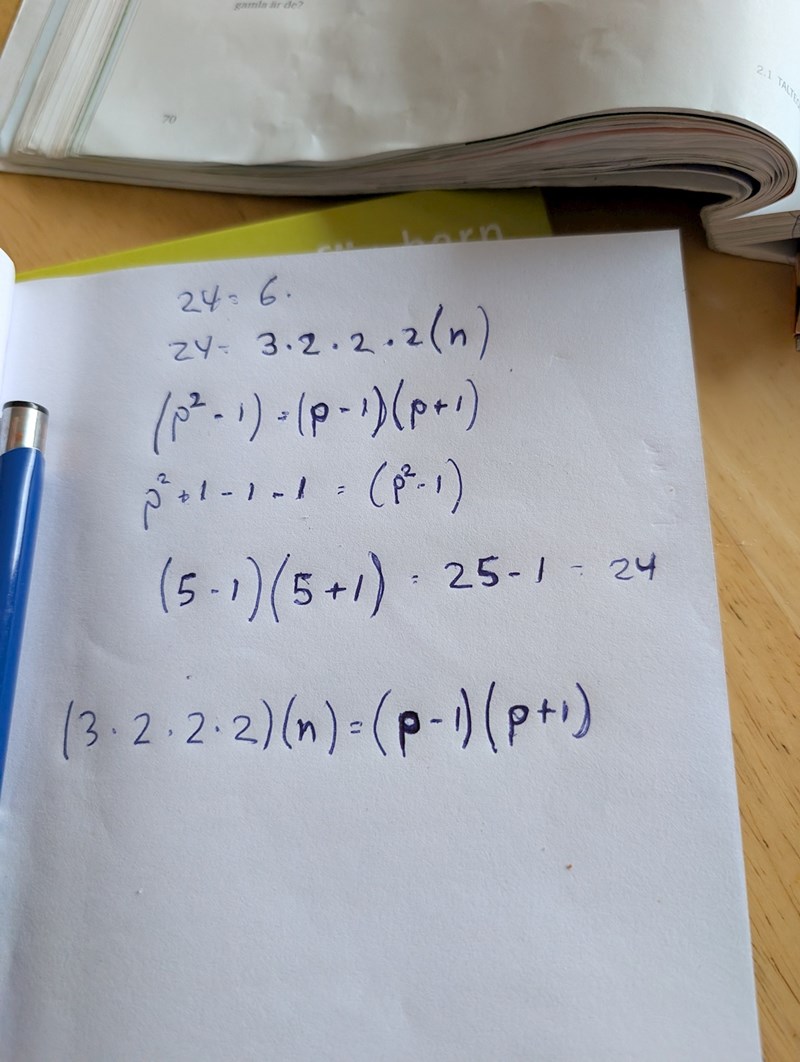 gamla är de?
70
2.1 TALTE
24 = 6.
24 = 3·2·2·2(n)
(p² - 1) = (p - 1)(p + 1)
p² + 1 - 1 - 1 = (p² - 1)
(5 - 1)(5 + 1) = 25 - 1 = 24
(3·2·2·2)(n) = (p - 1)(p + 1)